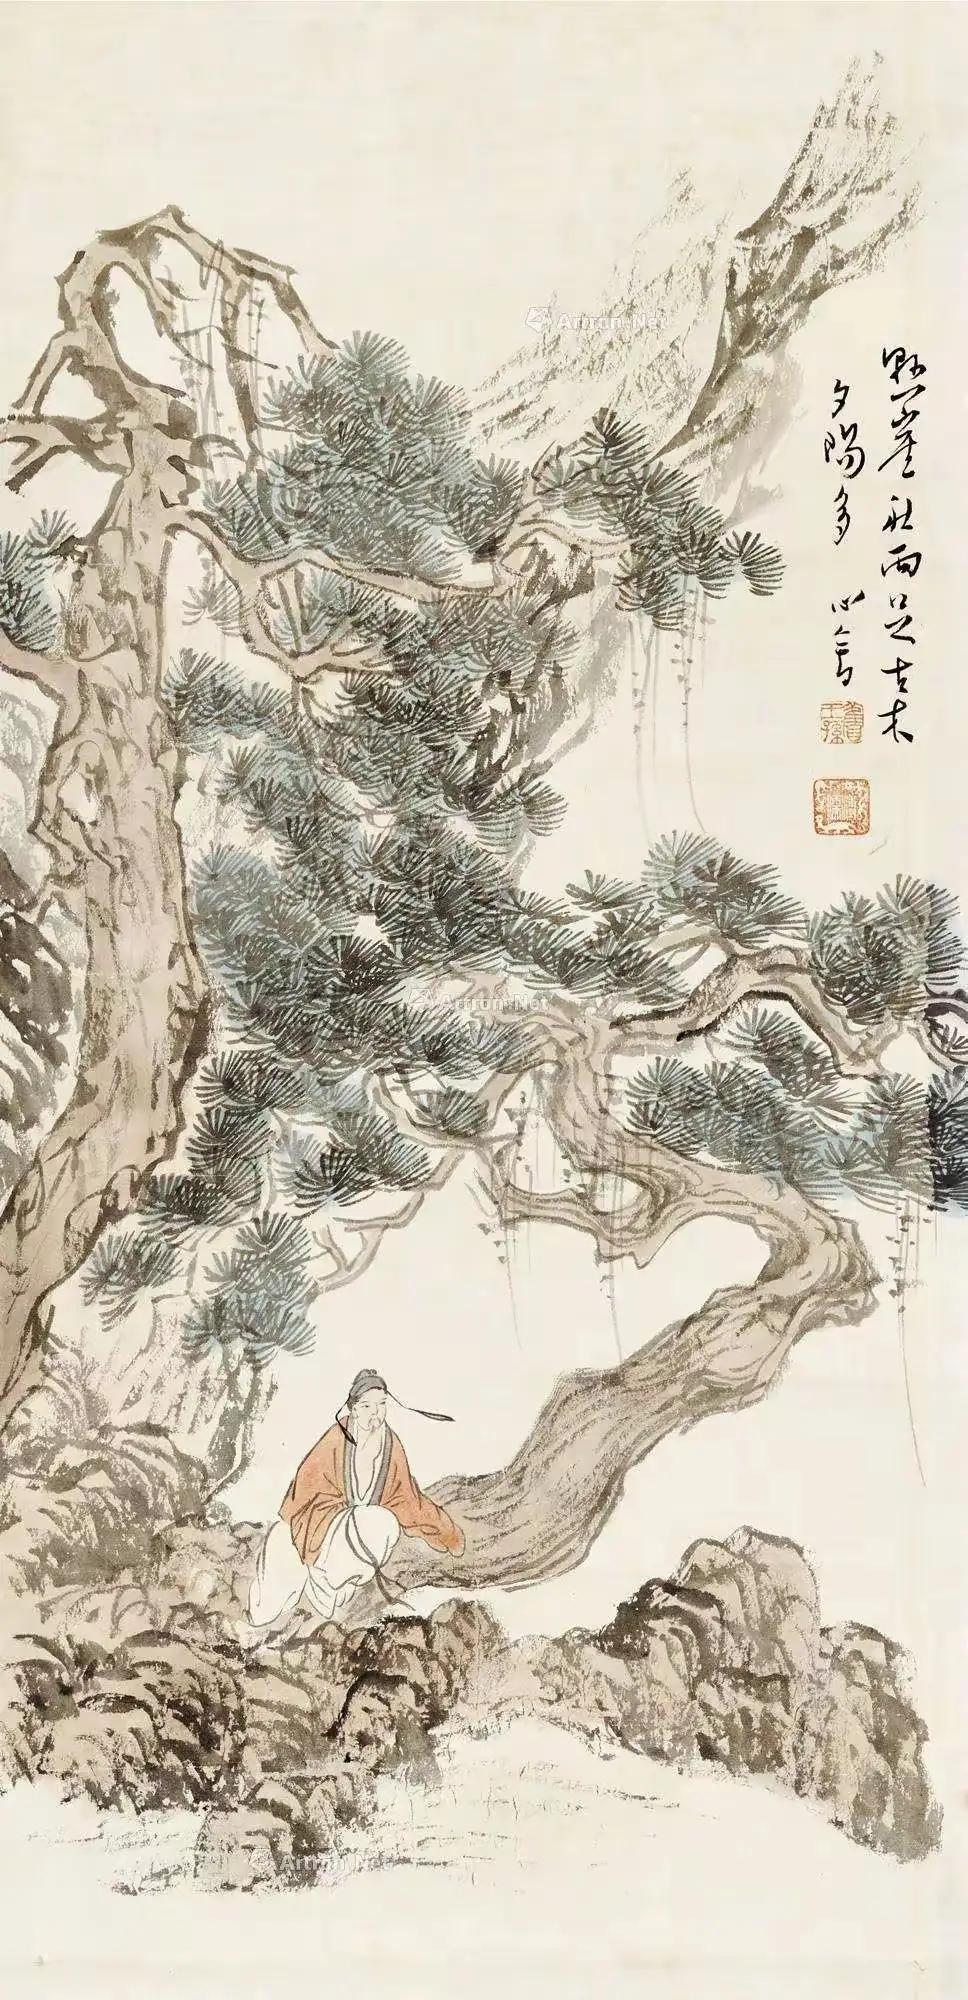 懸崖秋雨足古木
夕陽多 心畬
舊王孫
Artron.Net
Artron.Net
Artron.Net